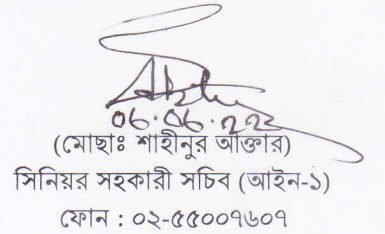 ০৬.০৬.২২
(মোছাঃ শাহীনুর আক্তার)
সিনিয়র সহকারী সচিব (আইন-১)
ফোন : ০২-৫৫০০৭৬০৭